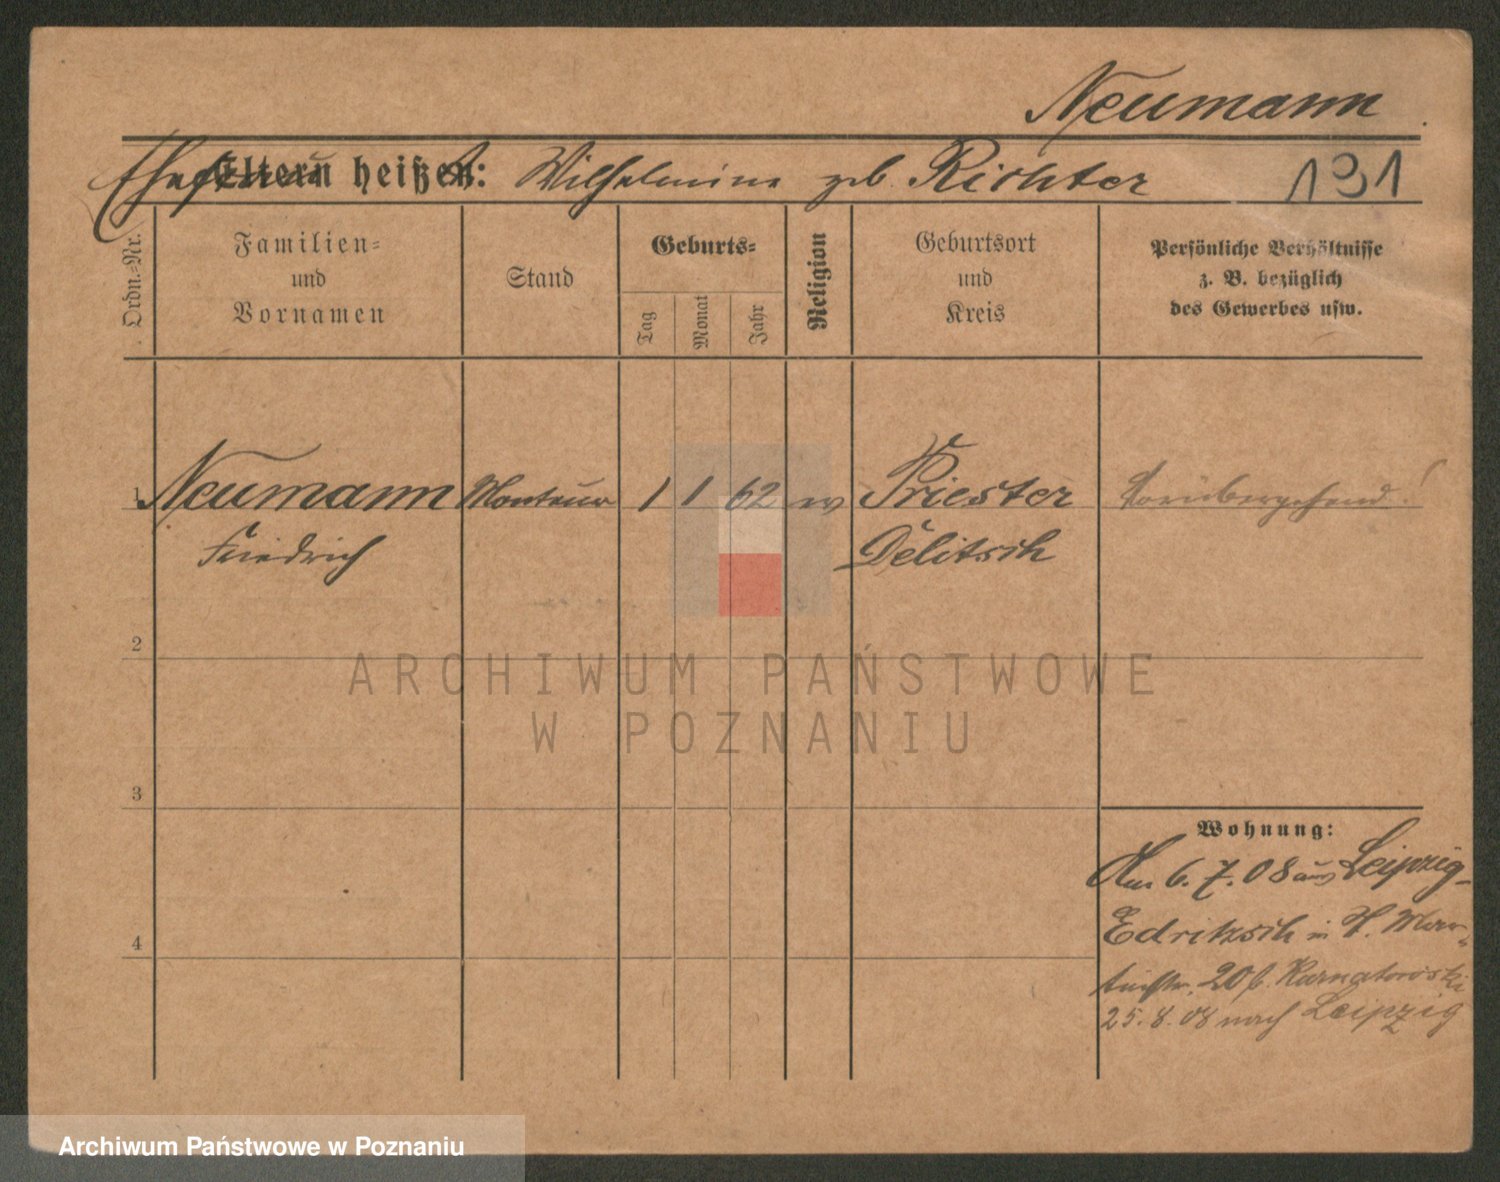 Neumann
Eltern heißen: Ehefrau Wilhelmine geb. Richter 131
Ordn.-Nr.
Familien-
und
Vornamen
Stand
Geburts-
Tag
Monat
Jahr
Religion
Geburtsort
und
Kreis
Persönliche Verhältnisse
z. B. bezüglich
des Gewerbes usw.
1 Neumann Monteur 1 1 62 ev Priester Vorübergehend!
Friedrich Delitsch
2
3
4
Wohnung:
Am 6.7.08 aus Leipzig-
Edritzsch in St. Mar-
tinstr. 20 b. Karnatowski
25.8.08 nach Leipzig
ARCHIWUM PAŃSTWOWE
W POZNANIU
Archiwum Państwowe w Poznaniu